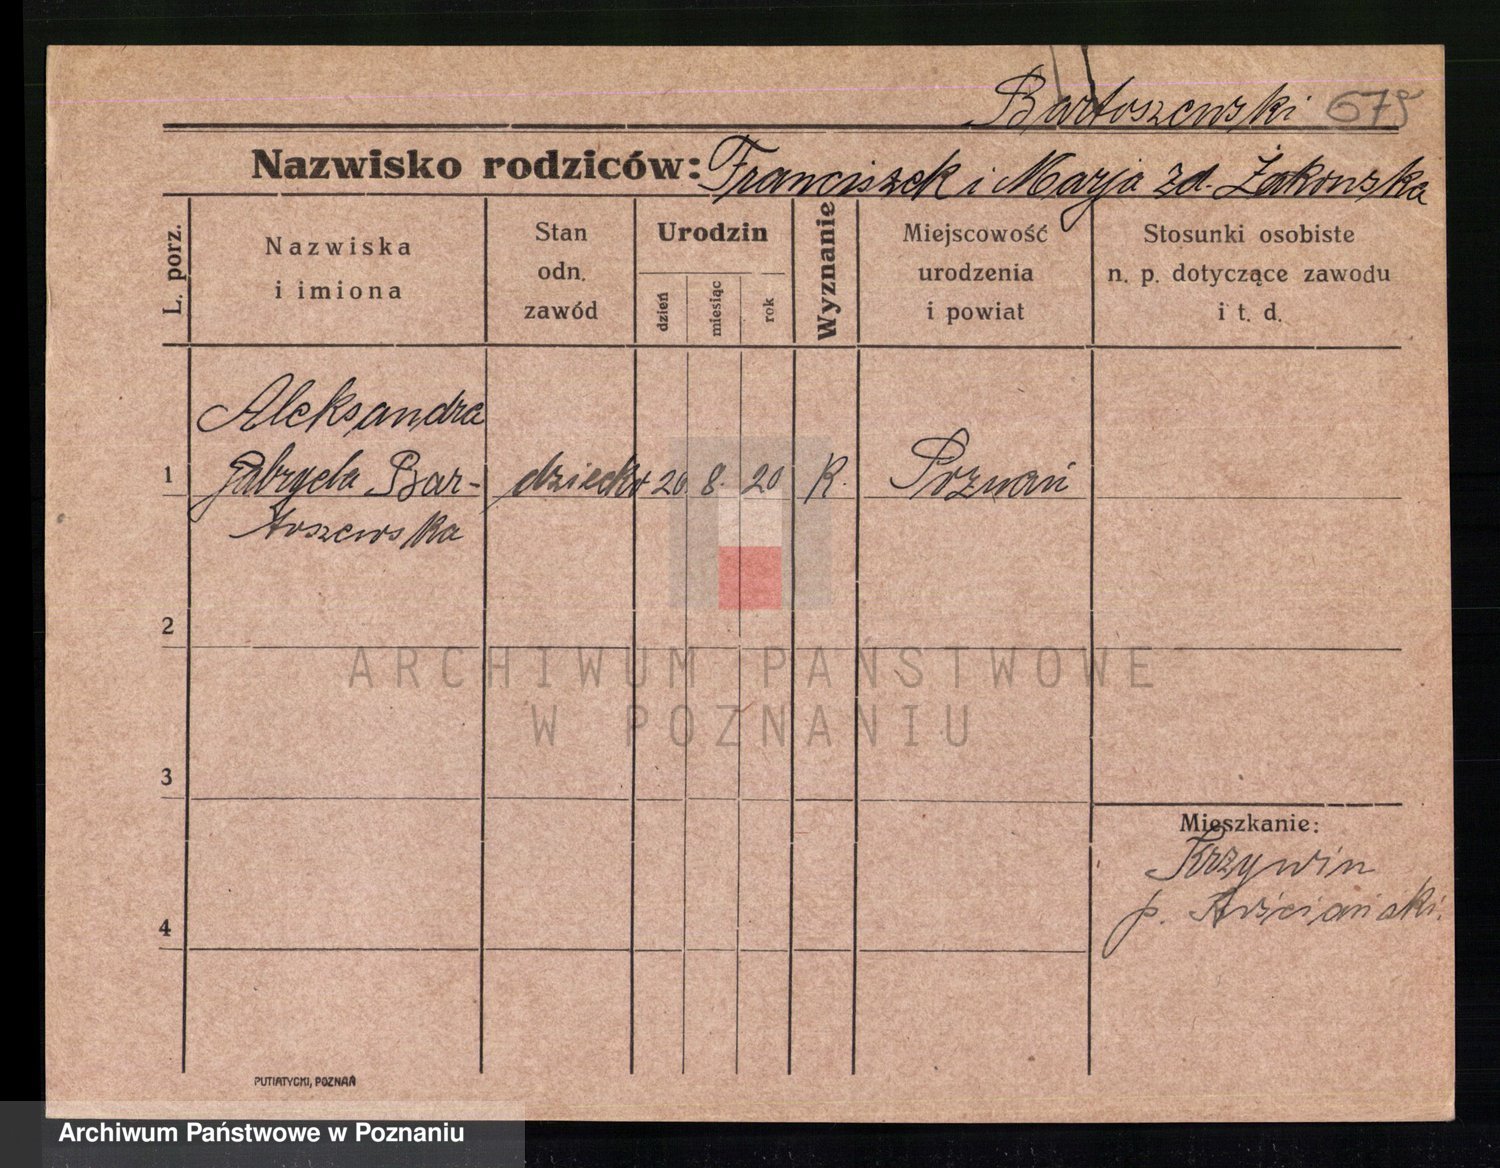 Bartoszewski 675
Nazwisko rodziców: Franciszek i Marja zd. Żakowska
L. porz.
Nazwiska
i imiona
Stan
odn.
zawód
Urodzin
dzień
miesiąc
rok
Wyznanie
Miejscowość
urodzenia
i powiat
Stosunki osobiste
n. p. dotyczące zawodu
i t. d.
Aleksandra
1 Gabryela Bar- dziecko 20 8. 20 R. Poznań
toszewska
2
ARCHIWUM PAŃSTWOWE
W POZNANIU
3
Mieszkanie:
Krzywin
p. Kościański.
4
PUTIATYCKI, POZNAŃ
Archiwum Państwowe w Poznaniu